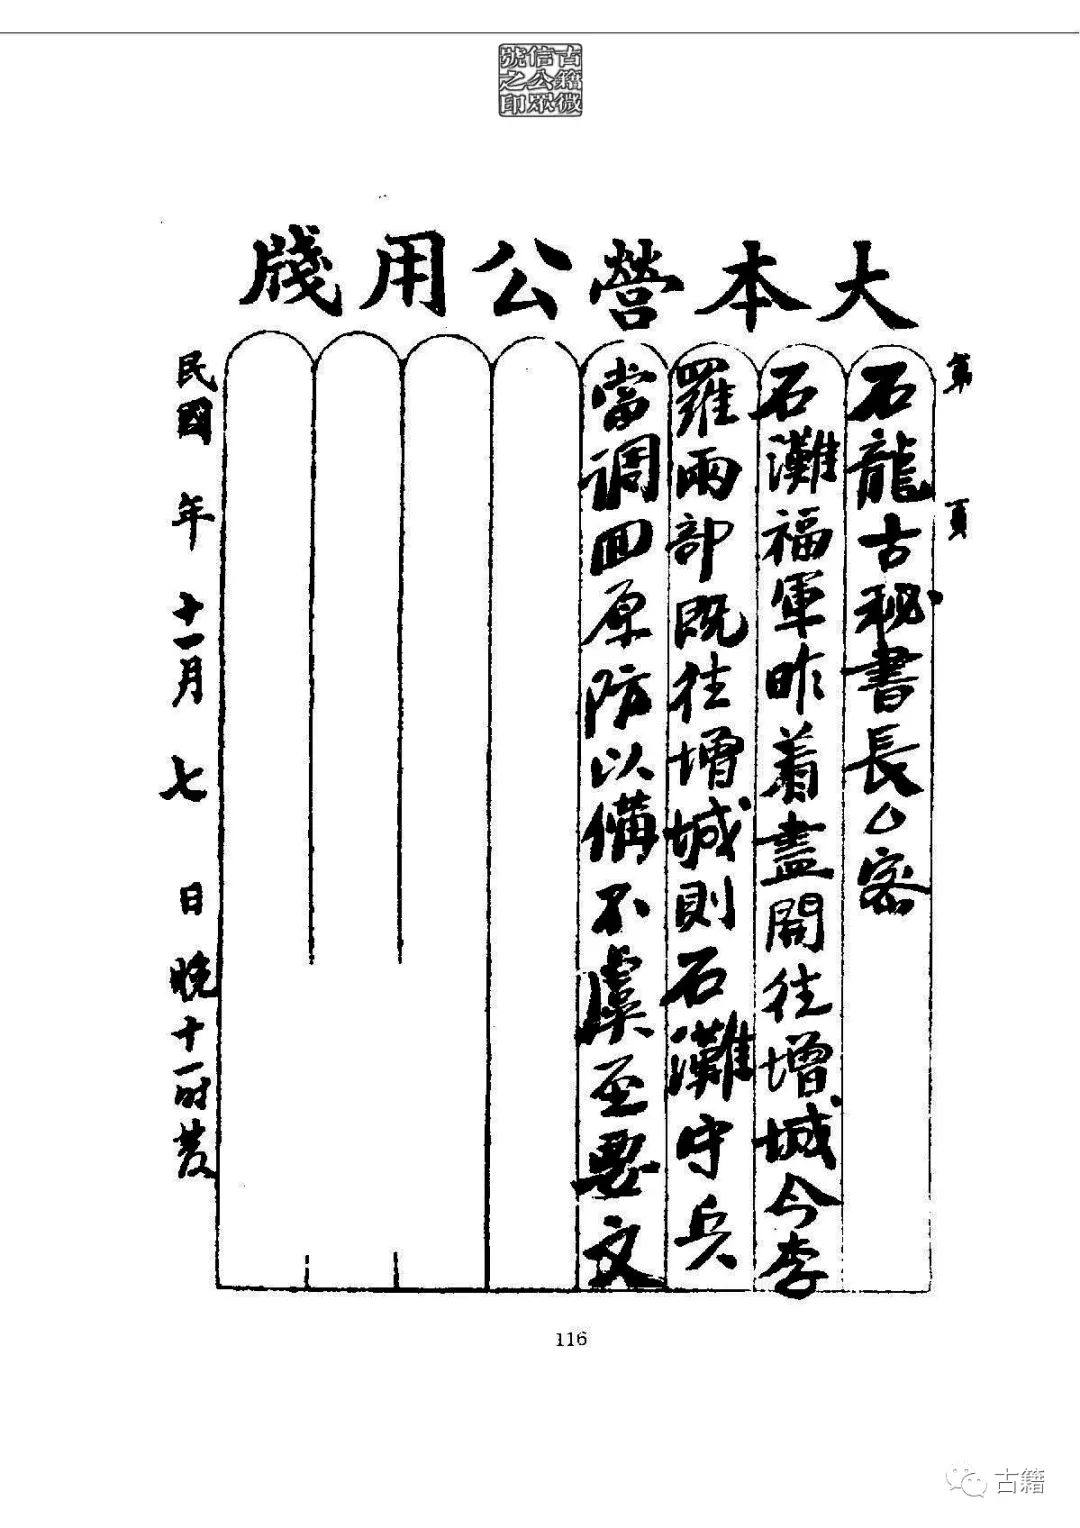 古籍微
信公眾
號之印
大本營公用牋
第 頁
石龍古秘書長△密
石灘福軍昨着盡開往增城今李
羅兩部既往增城則石灘守兵
當調回原防以備不虞至要文
民國 年 十一月 七 日 晚十一时发
116
古籍